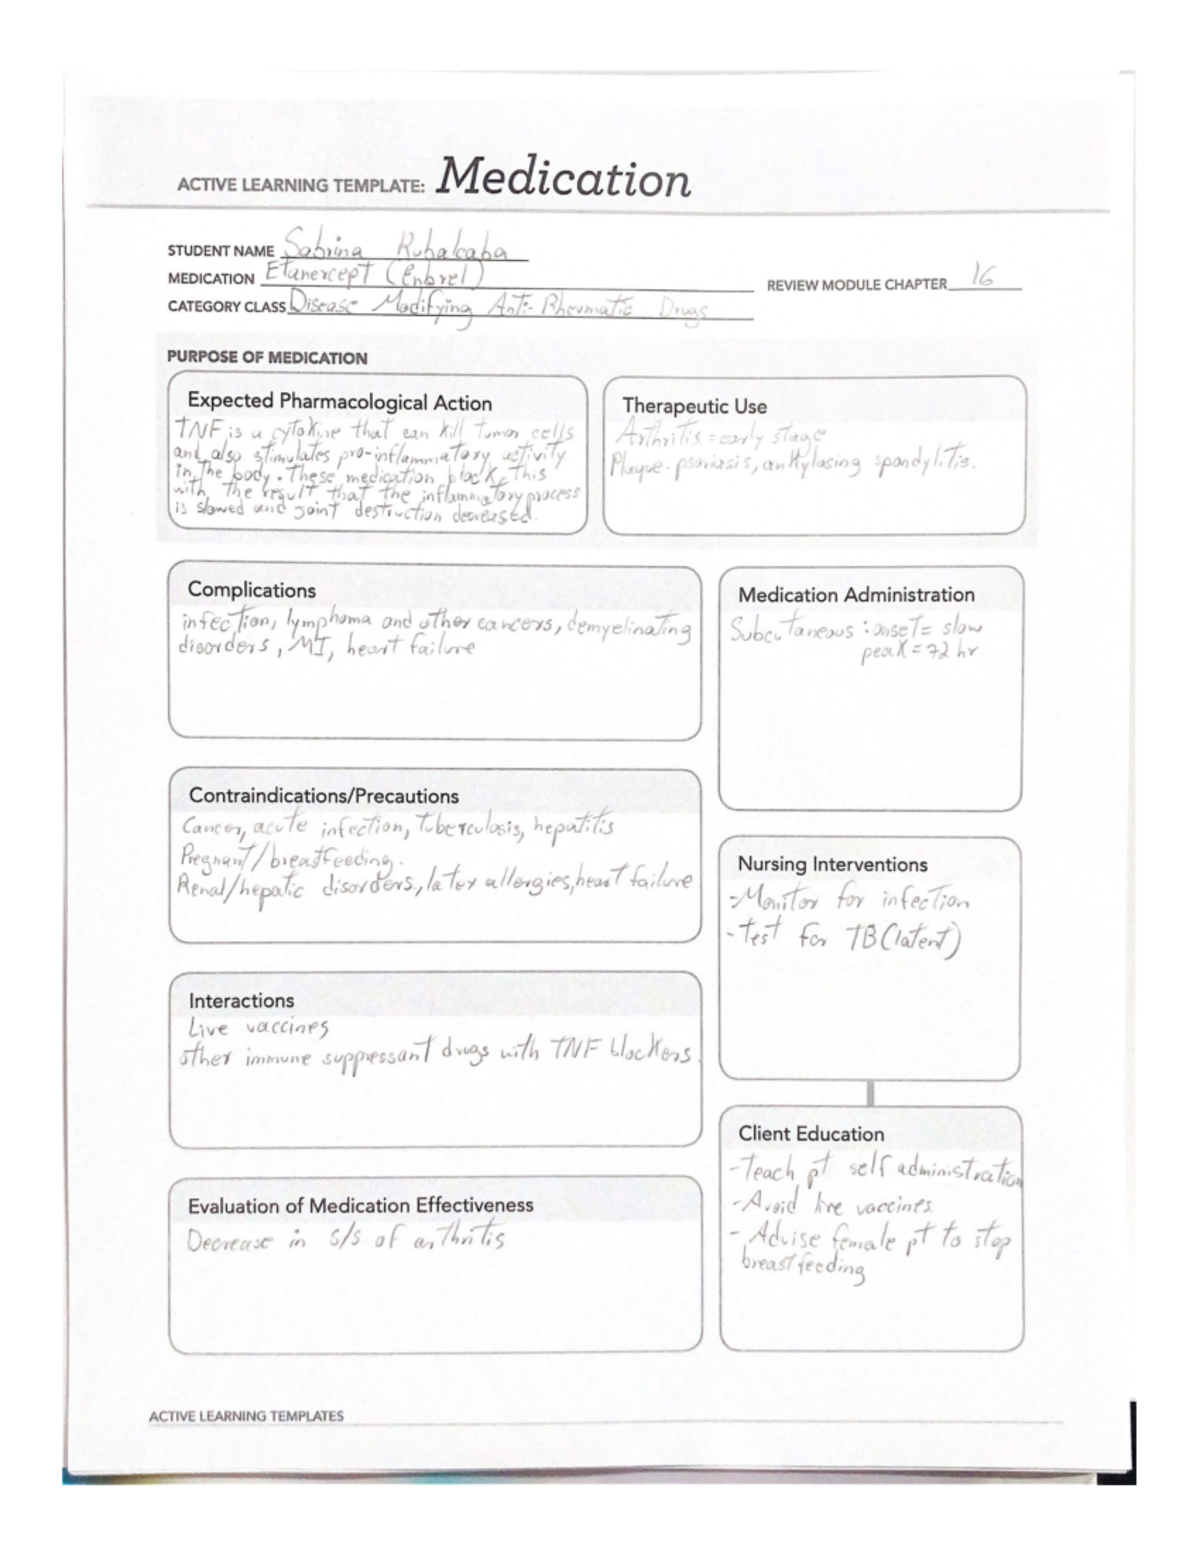 ACTIVE LEARNING TEMPLATE: Medication
STUDENT NAME Sabrina Rubalcaba
MEDICATION Etanercept (Enbrel)
REVIEW MODULE CHAPTER 16
CATEGORY CLASS Disease Modifying Anti-Rheumatic Drugs
PURPOSE OF MEDICATION
Expected Pharmacological Action
TNF is a cytokine that can kill tumor cells
and also stimulates pro-inflammatory activity
in the body. These medication block this
with the result that the inflammatory process
is slowed and joint destruction decreased.
Therapeutic Use
Arthritis = early stage
Plaque psoriasis, ankylosing spondylitis.
Complications
infection, lymphoma and other cancers, demyelinating
disorders, MI, heart failure
Medication Administration
Subcutaneous : onset = slow
peak = 72 hr
Contraindications/Precautions
Cancer, acute infection, tuberculosis, hepatitis
Pregnant/breastfeeding.
Renal/hepatic disorders, latex allergies, heart failure
Nursing Interventions
-Monitor for infection
-test for TB (latent)
Interactions
Live vaccines
other immune suppressant drugs with TNF blockers.
Client Education
-Teach pt self administration
-Avoid live vaccines
- Advise female pt to stop
breastfeeding
Evaluation of Medication Effectiveness
Decrease in s/s of arthritis
ACTIVE LEARNING TEMPLATES